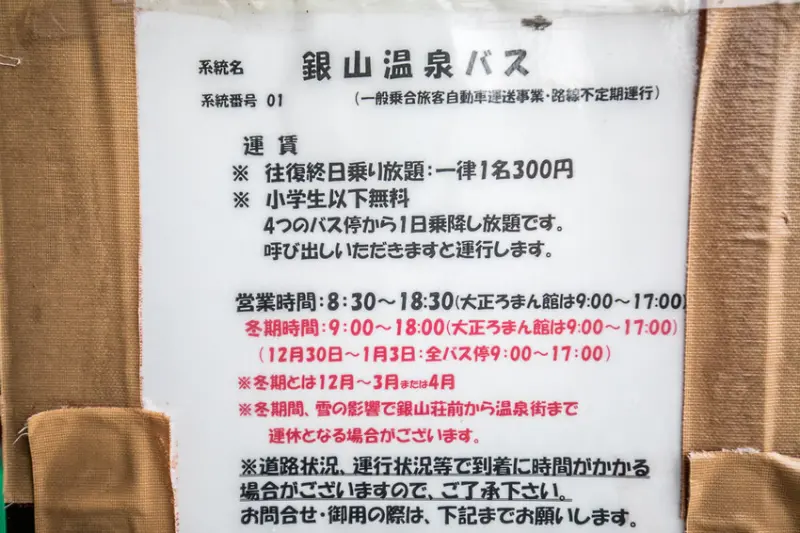 系統名 銀山温泉バス
系統番号 01 (一般乗合旅客自動車運送事業・路線不定期運行)
運 賃
※ 往復終日乗り放題:一律1名300円
※ 小学生以下無料
4つのバス停から1日乗降し放題です。
呼び出しいただきますと運行します。
営業時間:8:30~18:30(大正ろまん館は9:00~17:00)
冬期時間:9:00~18:00(大正ろまん館は9:00~17:00)
(12月30日~1月3日:全バス停9:00~17:00)
※冬期とは12月~3月または4月
※冬期間、雪の影響で銀山荘前から温泉街まで
運休となる場合がございます。
※道路状況、運行状況等で到着に時間がかかる
場合がございますので、ご了承下さい。
お問合せ・御用の際は、下記までお願いします。